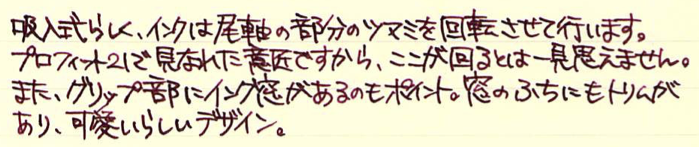 吸入式らしく、インクは尾軸の部分のツマミを回転させて行います。
プロフィット21で見なれた意匠ですから、ここが回るとは一見思えません。
また、グリップ部にインク窓があるのもポイント。窓のふちにもトリムが
あり、可愛いらしいデザイン。